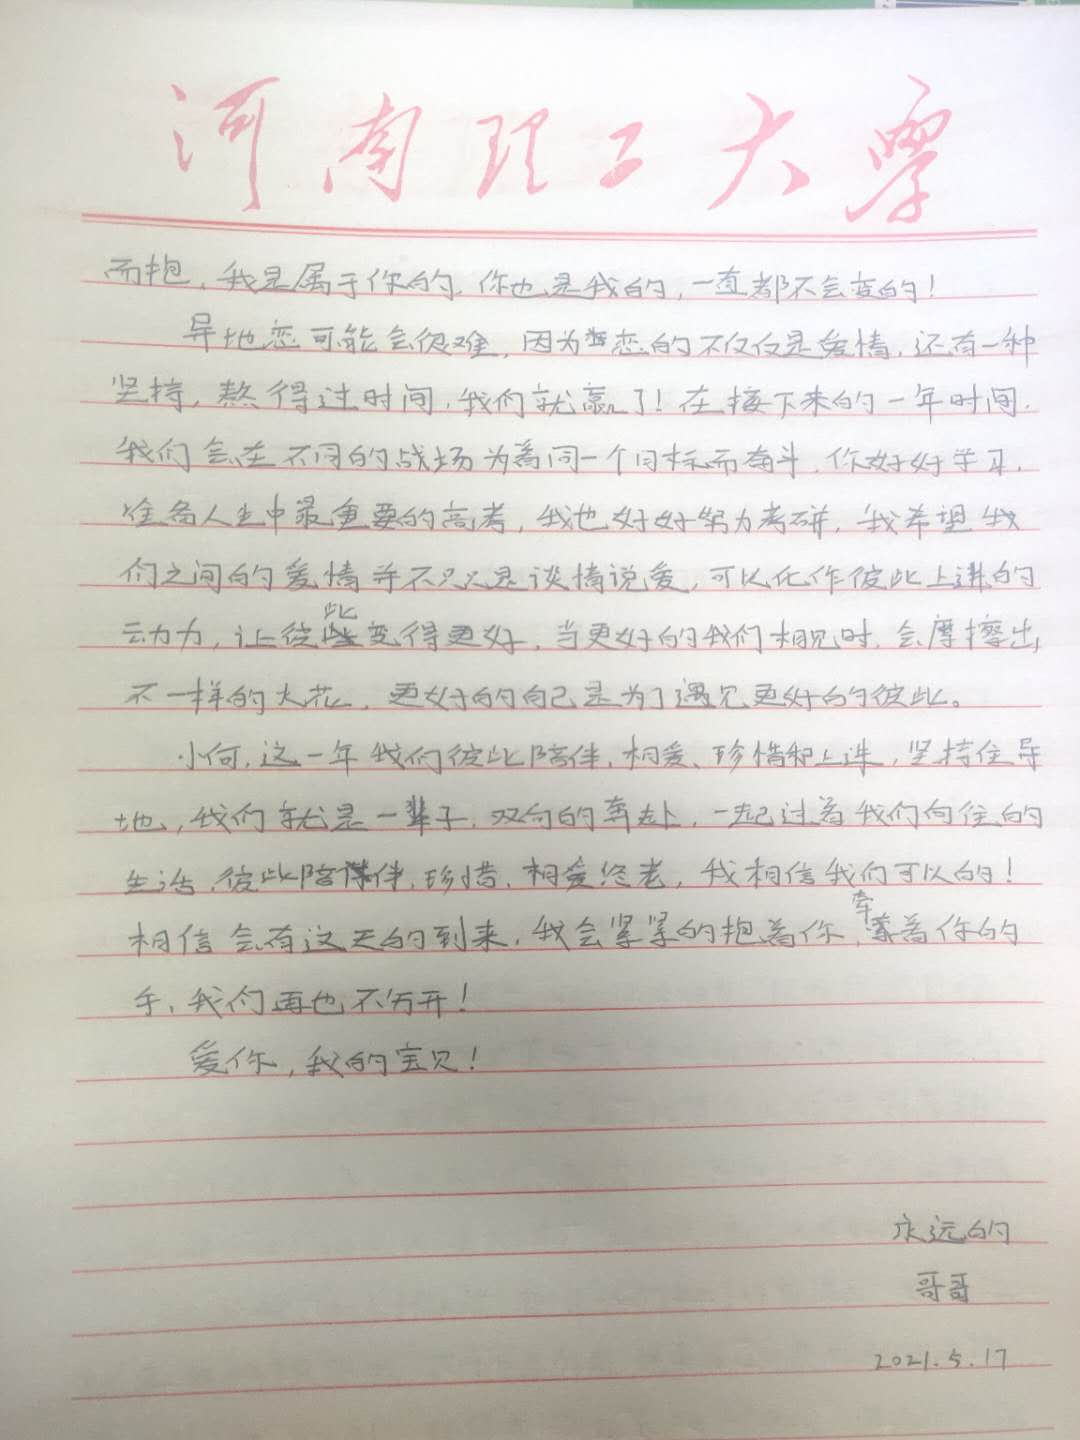 河南理工大学
而抱，我是属于你的，你也是我的，一直都不会变的！
异地恋可能会很难，因为恋的不仅仅是爱情，还有一种
坚持，熬得过时间，我们就赢了！在接下来的一年时间，
我们会在不同的战场为着同一个目标而奋斗，你好好学习，
准备人生中最重要的高考，我也好好努力考研，我希望我
们之间的爱情并不只只是谈情说爱，可以化作彼此上进的
动力，让彼此变得更好，当更好的我们相见时，会摩擦出
不一样的火花，更好的自己是为了遇见更好的彼此。
小何，这一年我们彼此陪伴、相爱、珍惜和上进，坚持住异
地，我们就是一辈子，双向的奔赴，一起过着我们向往的
生活，彼此陪伴，珍惜，相爱终老，我相信我们可以的！
相信会有这天的到来，我会紧紧的抱着你，牵着你的
手，我们再也不分开！
爱你，我的宝贝！
永远的
哥哥
2021.5.17